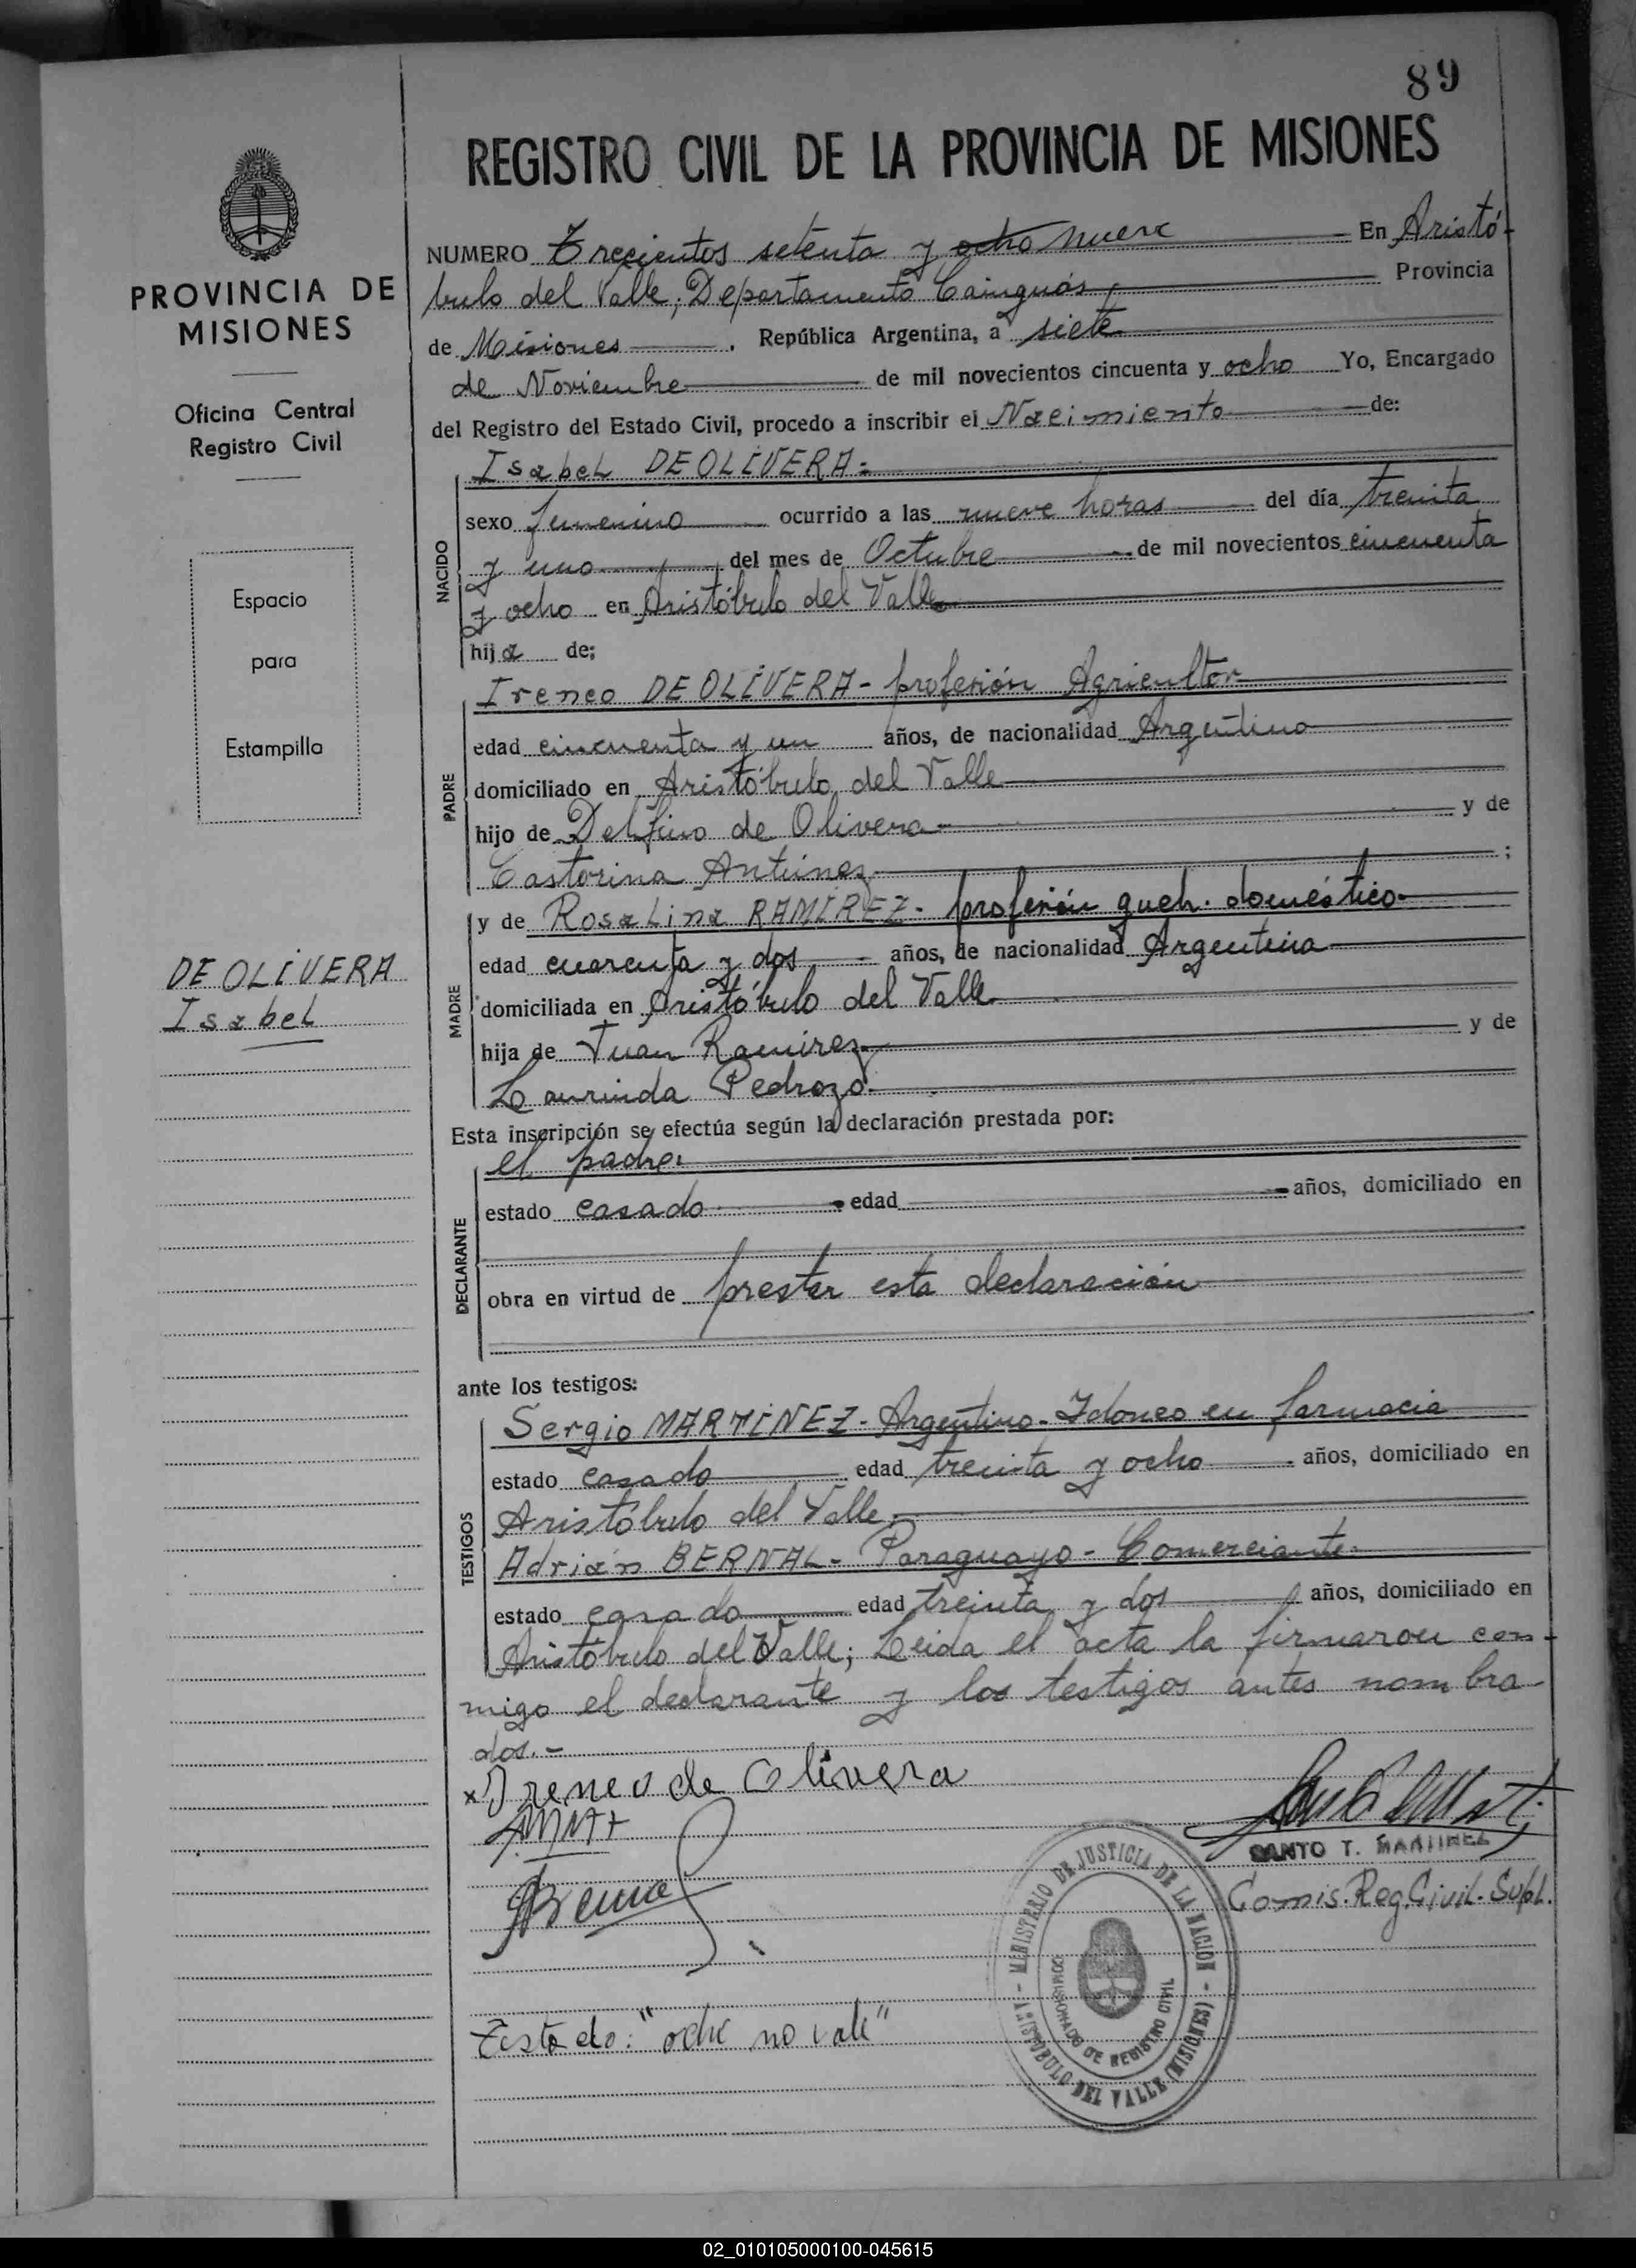 89
REGISTRO CIVIL DE LA PROVINCIA DE MISIONES
PROVINCIA DE
MISIONES
Oficina Central
Registro Civil
Espacio
para
Estampilla
DE OLIVERA
Isabel
NUMERO Trecientos setenta y ocho nueve En Aristó-
bulo del Valle, Departamento Cainguás, Provincia
de Misiones, República Argentina, a siete
de Noviembre de mil novecientos cincuenta y ocho Yo, Encargado
del Registro del Estado Civil, procedo a inscribir el Nacimiento de:
NACIDO
Isabel DE OLIVERA.
sexo femenino ocurrido a las nueve horas del día treinta
y uno del mes de Octubre de mil novecientos cincuenta
y ocho en Aristóbulo del Valle
hija de;
PADRE
Ireneo DE OLIVERA - profesión Agricultor
edad cincuenta y un años, de nacionalidad Argentino
domiciliado en Aristóbulo del Valle
hijo de Delfino de Olivera y de
Castorina Antunez ;
MADRE
y de Rosalina RAMIREZ - profesión queh. doméstico
edad cuarenta y dos años, de nacionalidad Argentina
domiciliada en Aristóbulo del Valle
hija de Juan Ramirez y de
Laurinda Pedrozo
Esta inscripción se efectúa según la declaración prestada por:
DECLARANTE
el padre.
estado casado edad años, domiciliado en
obra en virtud de prestar esta declaración
ante los testigos:
TESTIGOS
Sergio MARTINEZ - Argentino - Idoneo en farmacia
estado casado edad treinta y ocho años, domiciliado en
Aristóbulo del Valle,
Adrián BERNAL - Paraguayo - Comerciante.
estado casado edad treinta y dos años, domiciliado en
Aristóbulo del Valle; Leida el acta la firmaron con-
migo el declarante y los testigos antes nombra-
dos.-
x Ireneo de Olivera
SANTO T. MARTINEZ
Comis. Reg. Civil. Supl.
- MINISTERIO DE JUSTICIA DE LA NACION -
ARISTOBULO DEL VALLE (MISIONES)
COMISIONADO DE REGISTRO CIVIL
Testado: "ocho no vale"
02_010105000100-045615